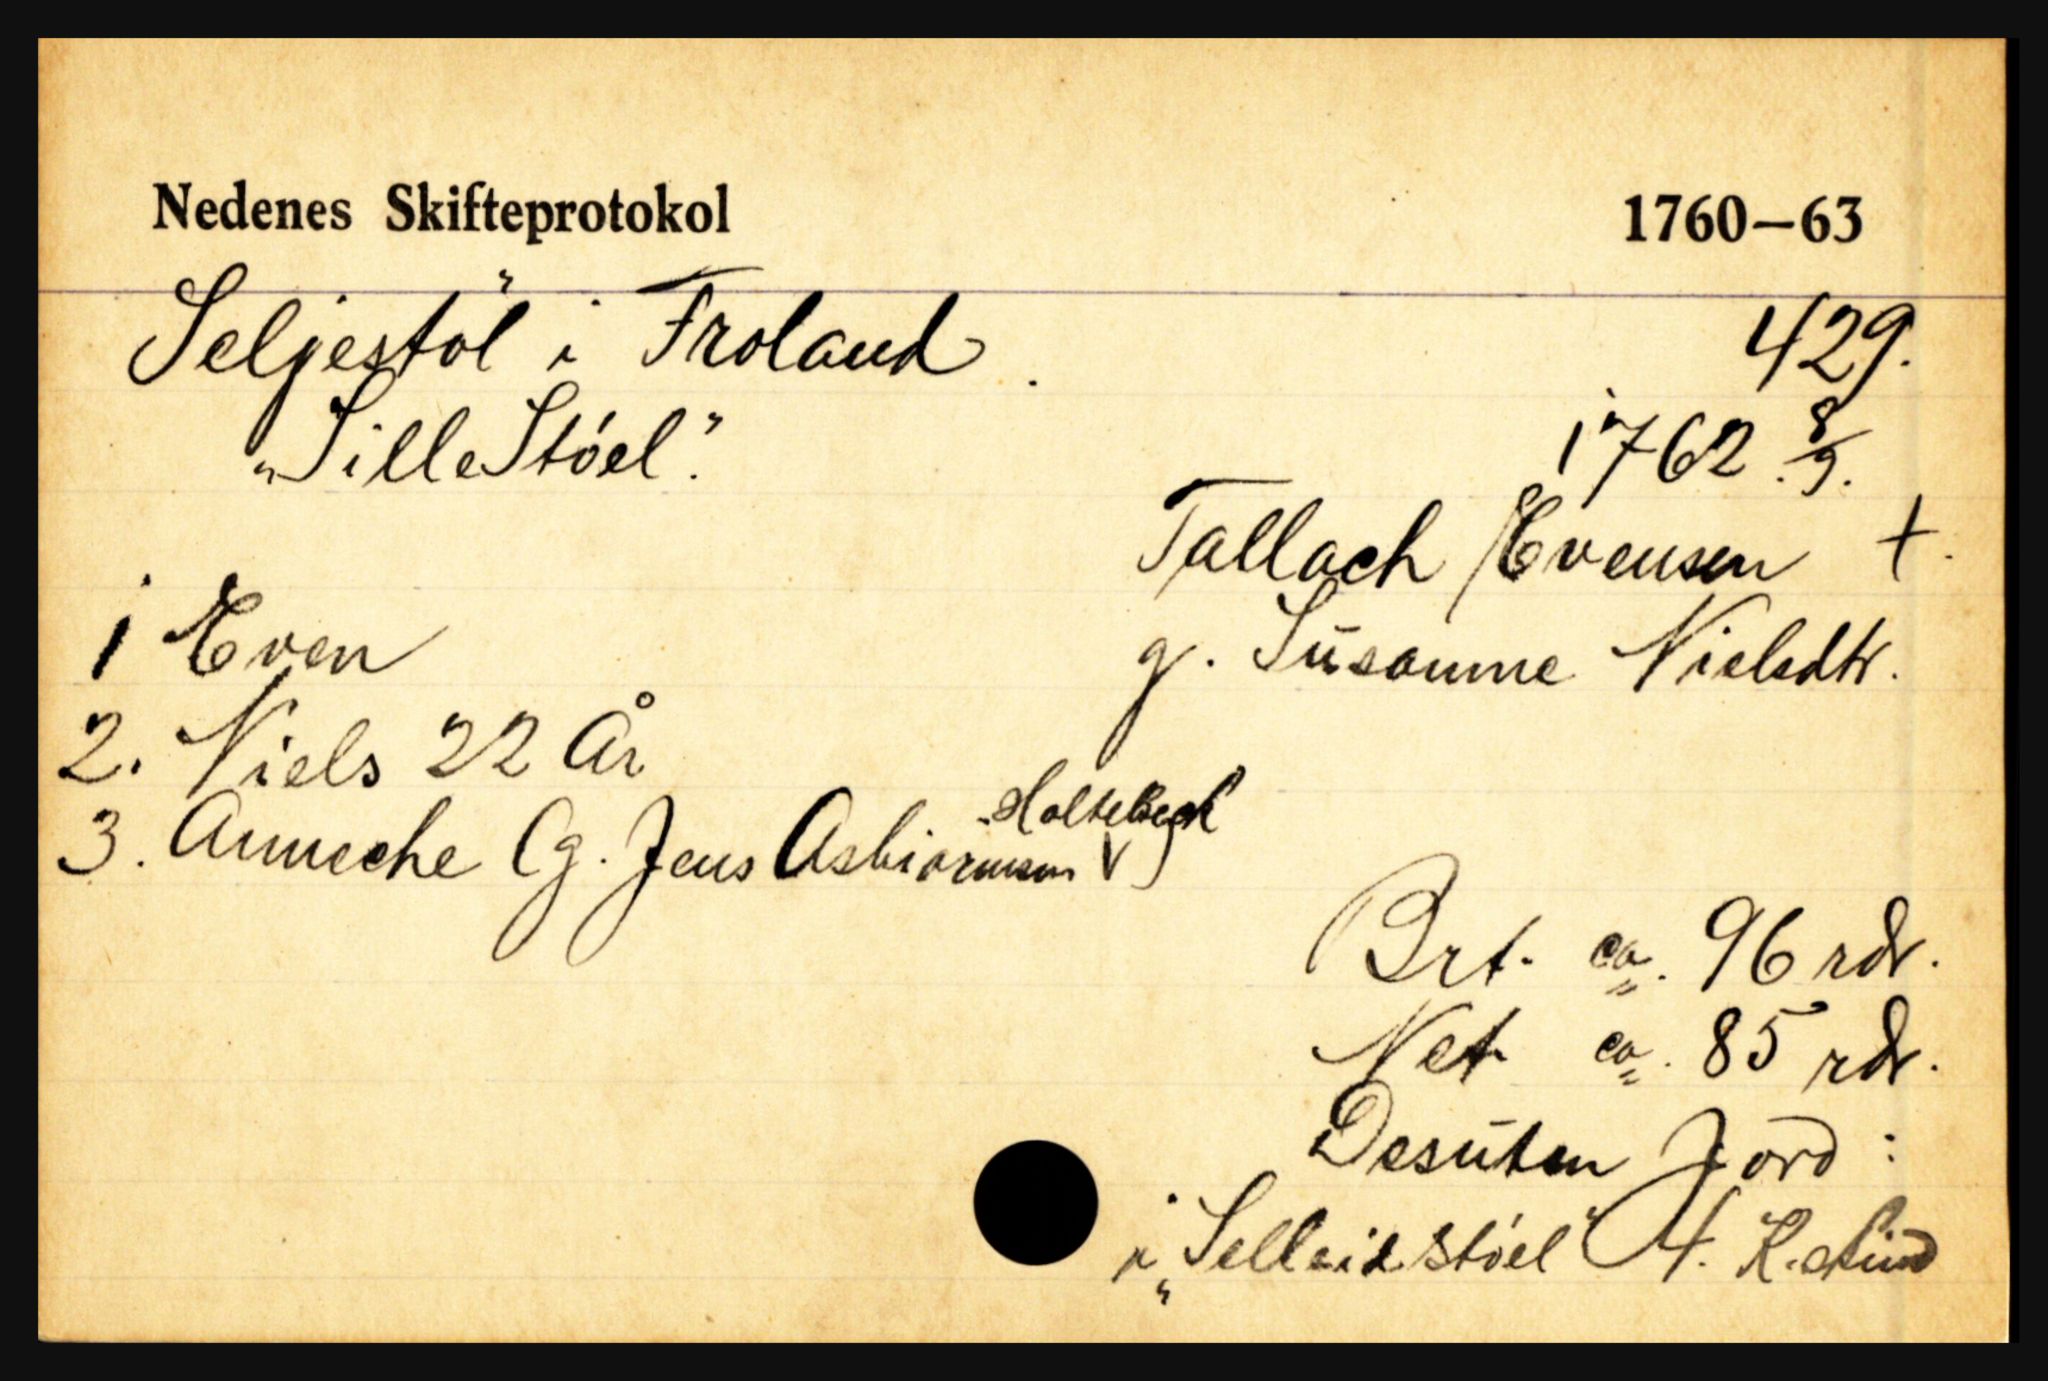 Nedenes Skifteprotokol 1760–63
Seljestöl i Froland. 429.
"Sille Stóel". 1762. 8/9.
Tallach Evensen +.
1 Even
g. Susanne Nielsdtr.
2. Niels 22 År
3. Anneche (g. Jens Asbiørnsen Holtebech)
Brt. ca. 96 rdr.
Net ca. 85 rdr.
Desuten Jord:
i "Selleidstóel"